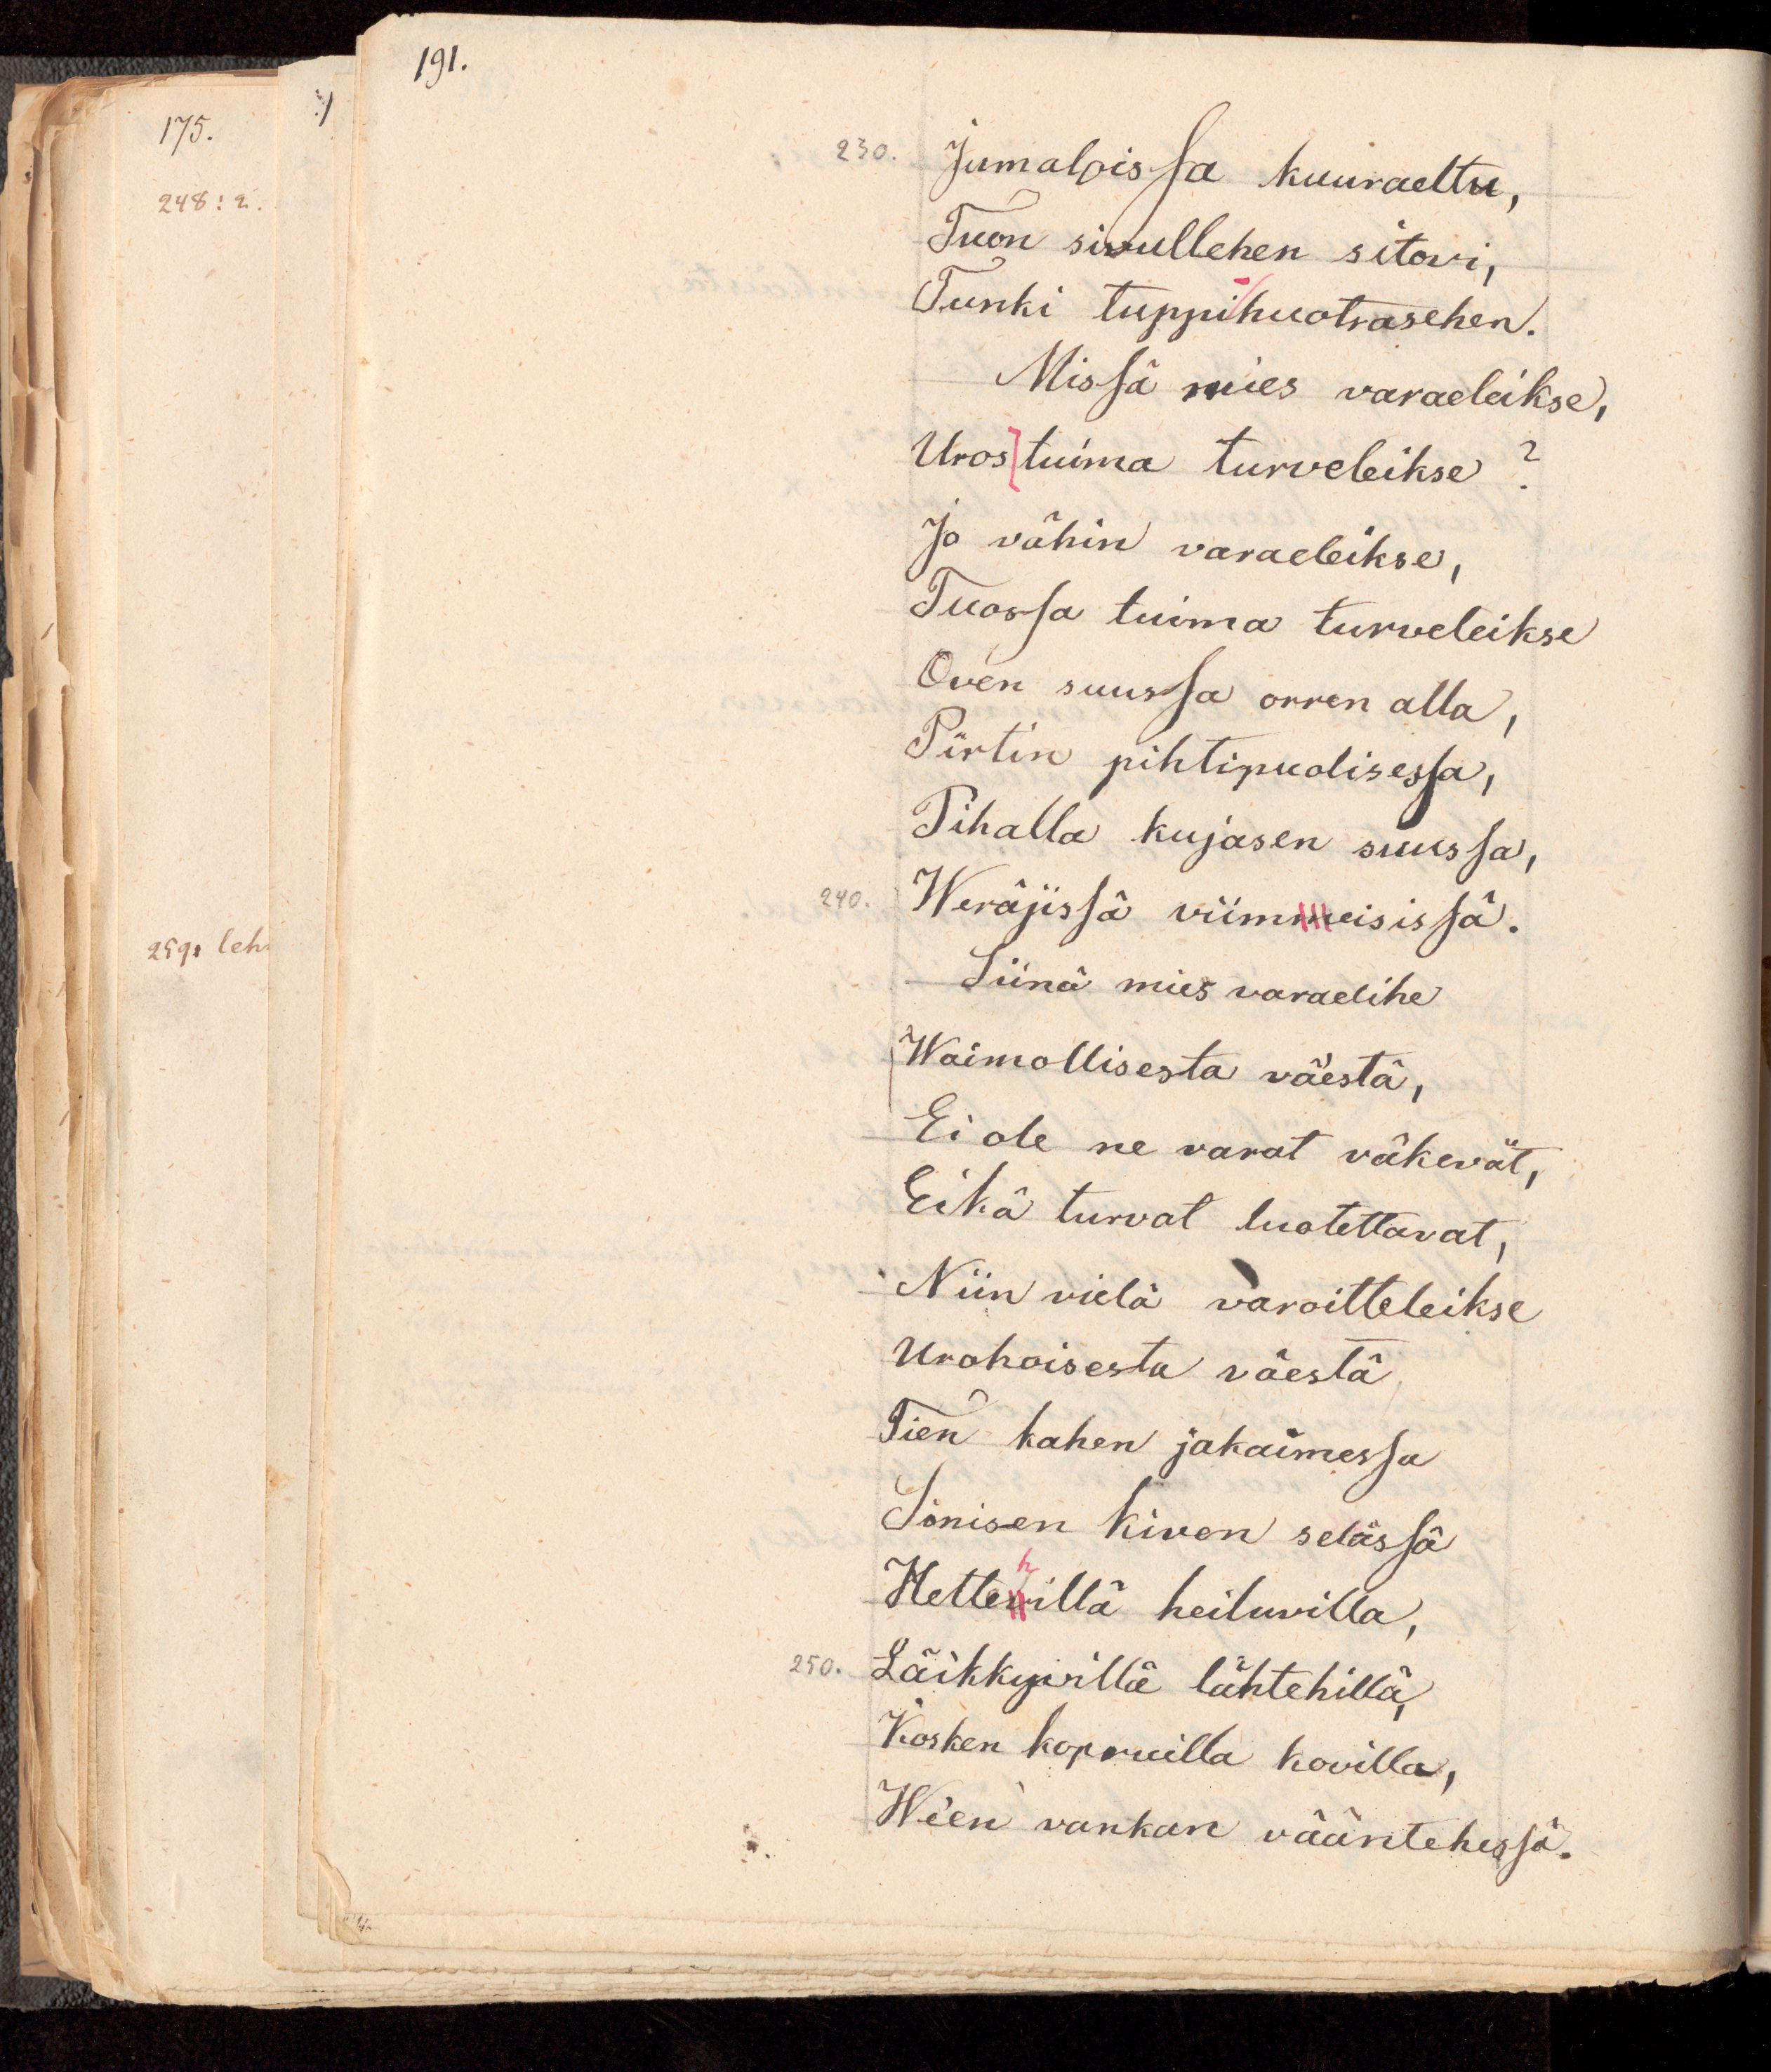 191.
175.
248: 2.
259: leh
230. Jumaloissa kuuraeltu,
Tuon sivullehen sitovi,
Tunki tuppi-huotrasehen.
Missä mies varaeleikse,
Uros tuima turveleikse?
Jo vähin varaeleikse,
Tuossa tuima turveleikse
Oven suussa orren alla,
Pirtin pihtipuolisessa,
Pihalla kujasen suussa,
240. Weräjissä viimmeisissä.
Siinä mies varaelihe
Waimollisesta väestä,
Ei ole ne varat väkevät,
Eikä turvat luotettavat,
Niin vielä varoitteleikse
Urohoisesta väestä
Tien kahen jakaimessa
Sinisen kiven selässä
h
Hettevillä heiluvilla,
250. Läikkyvillä lähtehillä,
Kosken kopruilla kovilla,
Wéen vankan vääntehessä.